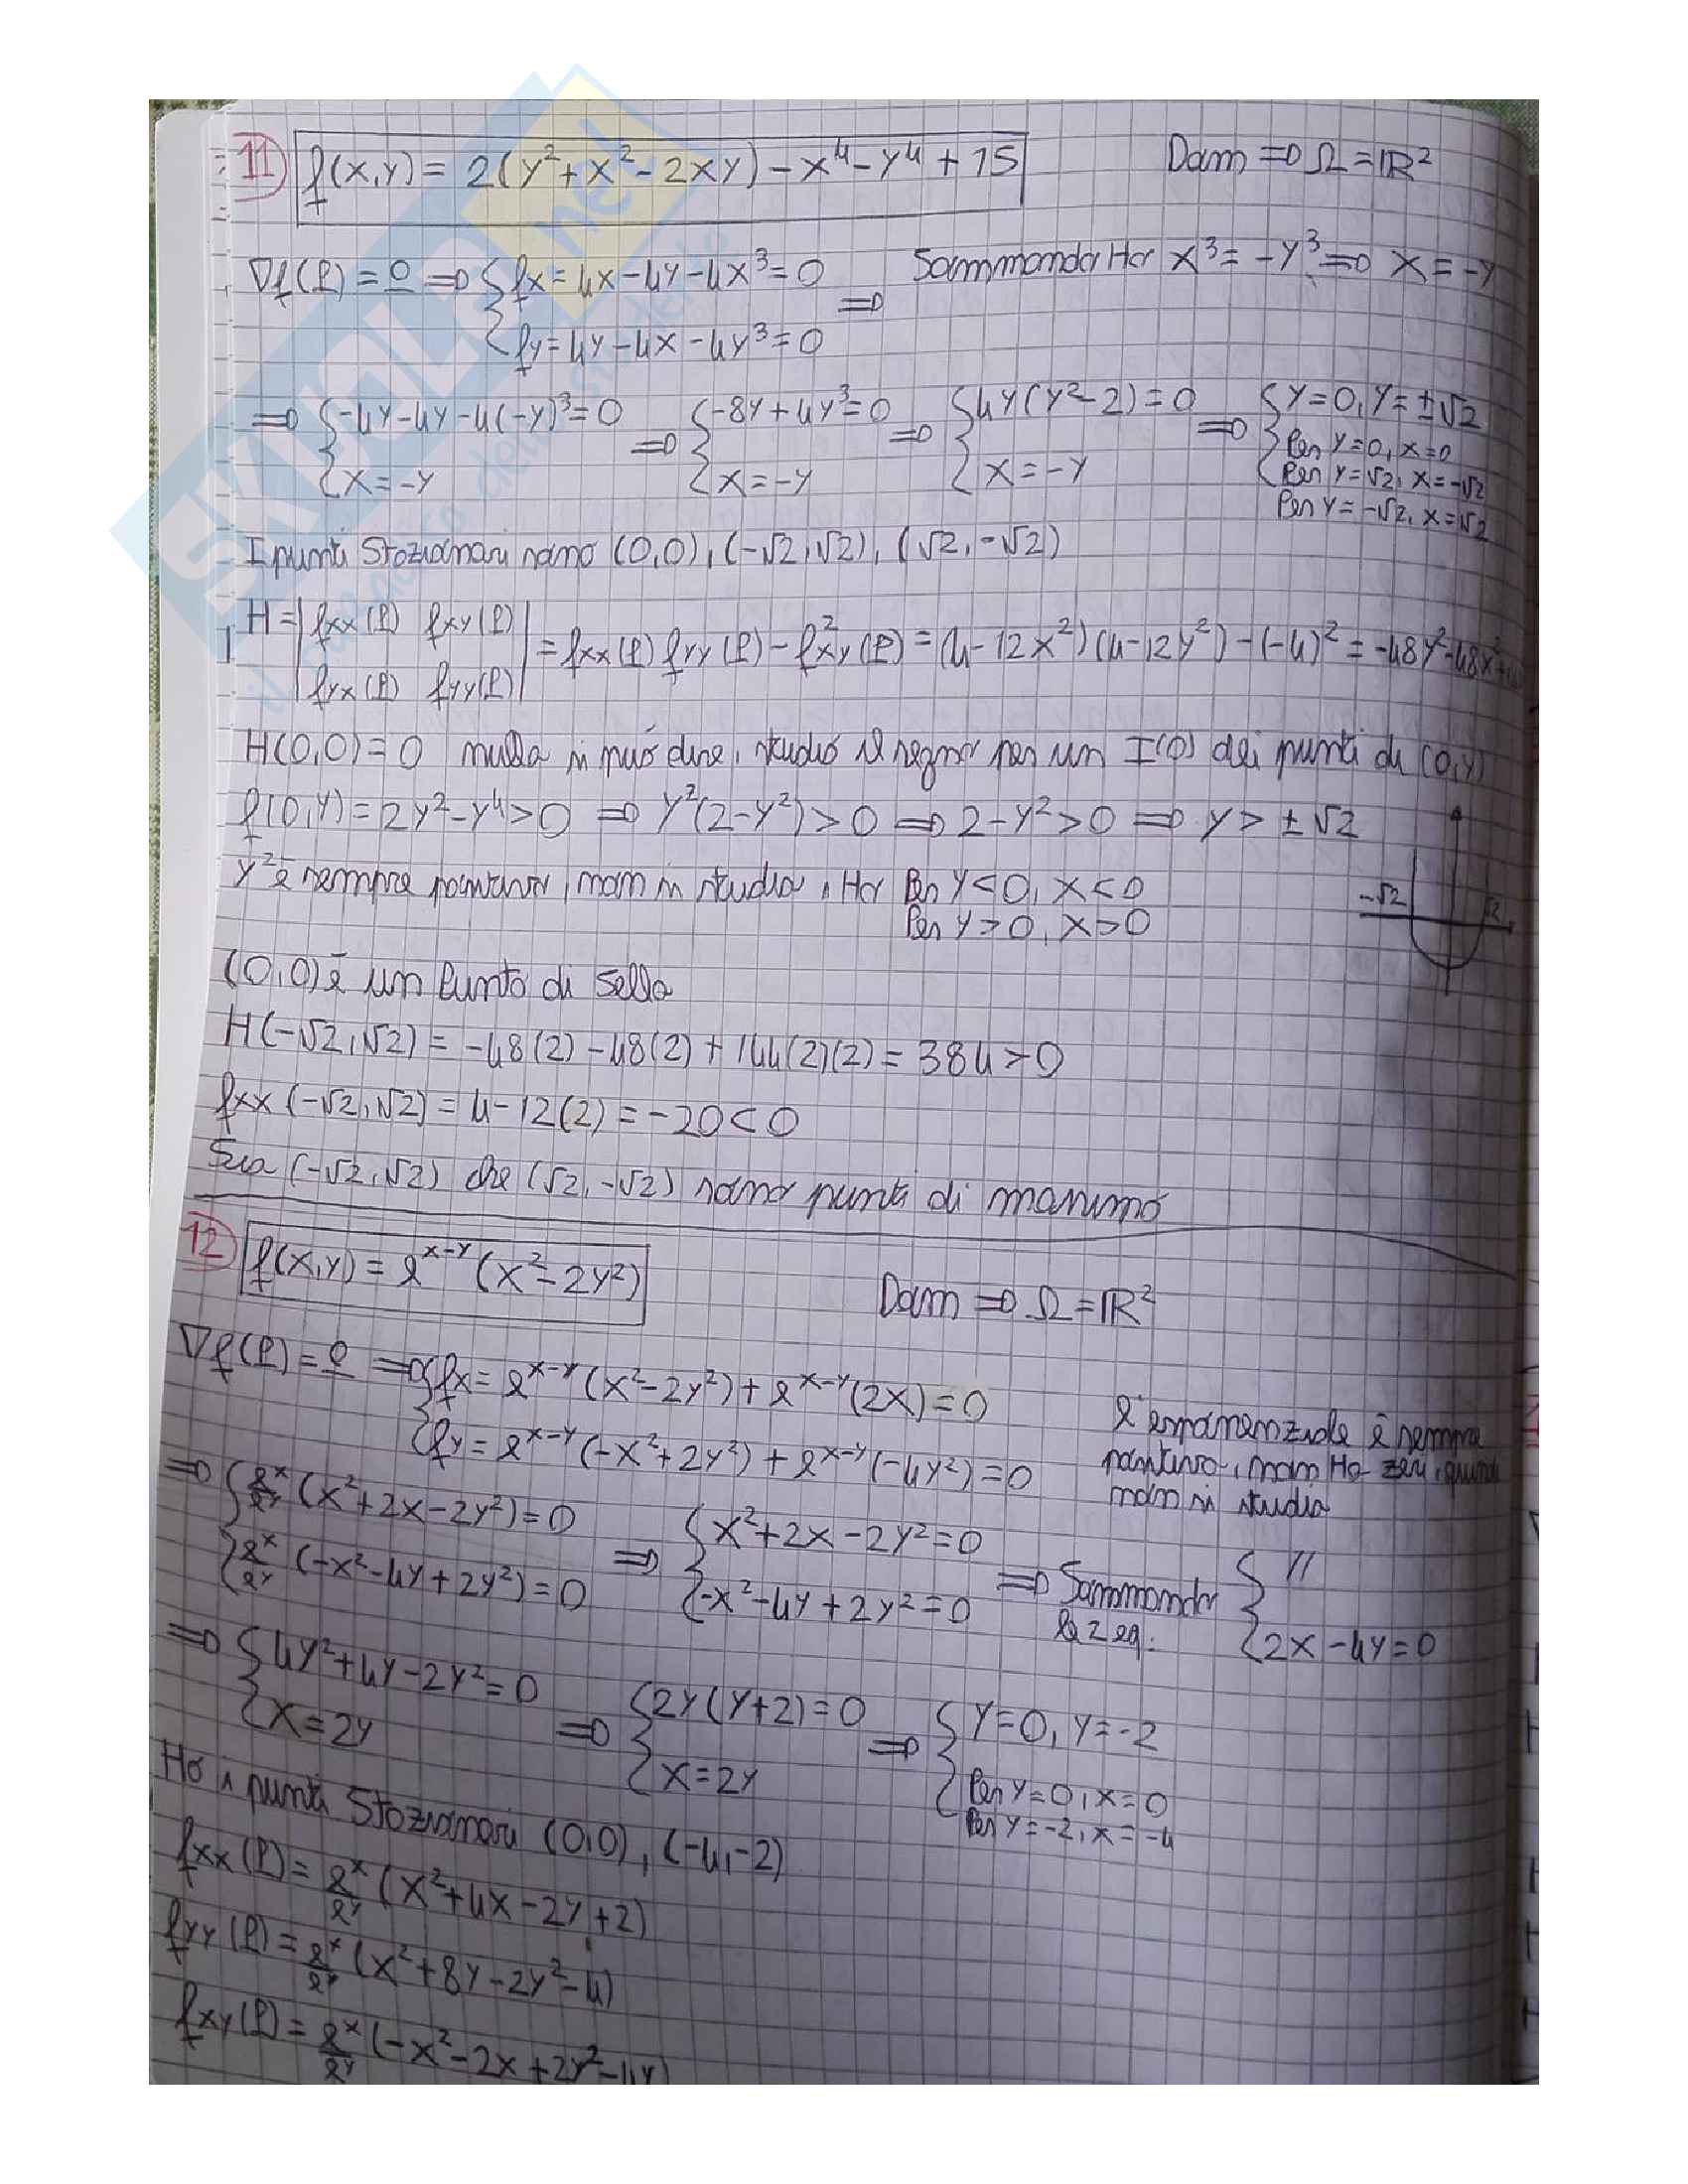 11) f(x,y) = 2(y²+x²-2xy)-x⁴-y⁴+15 Dom ⇒ Ω=ℝ²
∇f(P)=0 ⇒ { fx=4x-4y-4x³=0 ⇒ Sommando Ho x³=-y³ ⇒ x=-y
{ fy=4y-4x-4y³=0
⇒ { -4y-4y-4(-y)³=0 ⇒ { -8y+4y³=0 ⇒ { 4y(y²-2)=0 ⇒ { y=0, y=±√2
{ x=-y { x=-y { x=-y Per y=0, x=0
Per y=√2, x=-√2
Per y=-√2, x=√2
I punti Stazionari sono (0,0), (-√2,√2), (√2,-√2)
H=| fxx(P) fxy(P) | = fxx(P) fyy(P) - f²xy(P) = (4-12x²)(4-12y²)-(-4)² = -48y²-48x²
| fyx(P) fyy(P) |
H(0,0)=0 nulla si può dire, studio il segno per un I(0) dei punti di (0,y)
f(0,y)=2y²-y⁴>0 ⇒ y²(2-y²)>0 ⇒ 2-y²>0 ⇒ y>±√2
y² è sempre positivo, non si studia, Ho Per y<0, x<0
Per y>0, x>0
-√2 √2
(0,0) è un Punto di Sella
H(-√2,√2) = -48(2)-48(2)+144(2)(2) = 384>0
fxx(-√2,√2) = 4-12(2) = -20<0
Sia (-√2,√2) che (√2,-√2) sono punti di massimo
12) f(x,y) = e^(x-y) (x²-2y²) Dom ⇒ Ω=ℝ²
∇f(P)=0 ⇒ { fx = e^(x-y)(x²-2y²)+e^(x-y)(2x)=0
{ fy = e^(x-y)(-x²+2y²)+e^(x-y)(-4y²)=0
l'esponenziale è sempre
positivo, non Ho zeri, quindi
non si studia
⇒ { e^x/e^y (x²+2x-2y²)=0 ⇒ { x²+2x-2y²=0 ⇒ Sommando { //
{ e^x/e^y (-x²-4y+2y²)=0 { -x²-4y+2y²=0 le 2 eq. { 2x-4y=0
⇒ { 4y²+4y-2y²=0 ⇒ { 2y(y+2)=0 ⇒ { y=0, y=-2
{ x=2y { x=2y { Per y=0, x=0
Per y=-2, x=-4
Ho i punti Stazionari (0,0), (-4,-2)
fxx(P) = e^x/e^y (x²+4x-2y+2)
fyy(P) = e^x/e^y (x²+8y-2y²-4)
fxy(P) = e^x/e^y (-x²-2x+2y²-4y)
SKUOLA.net